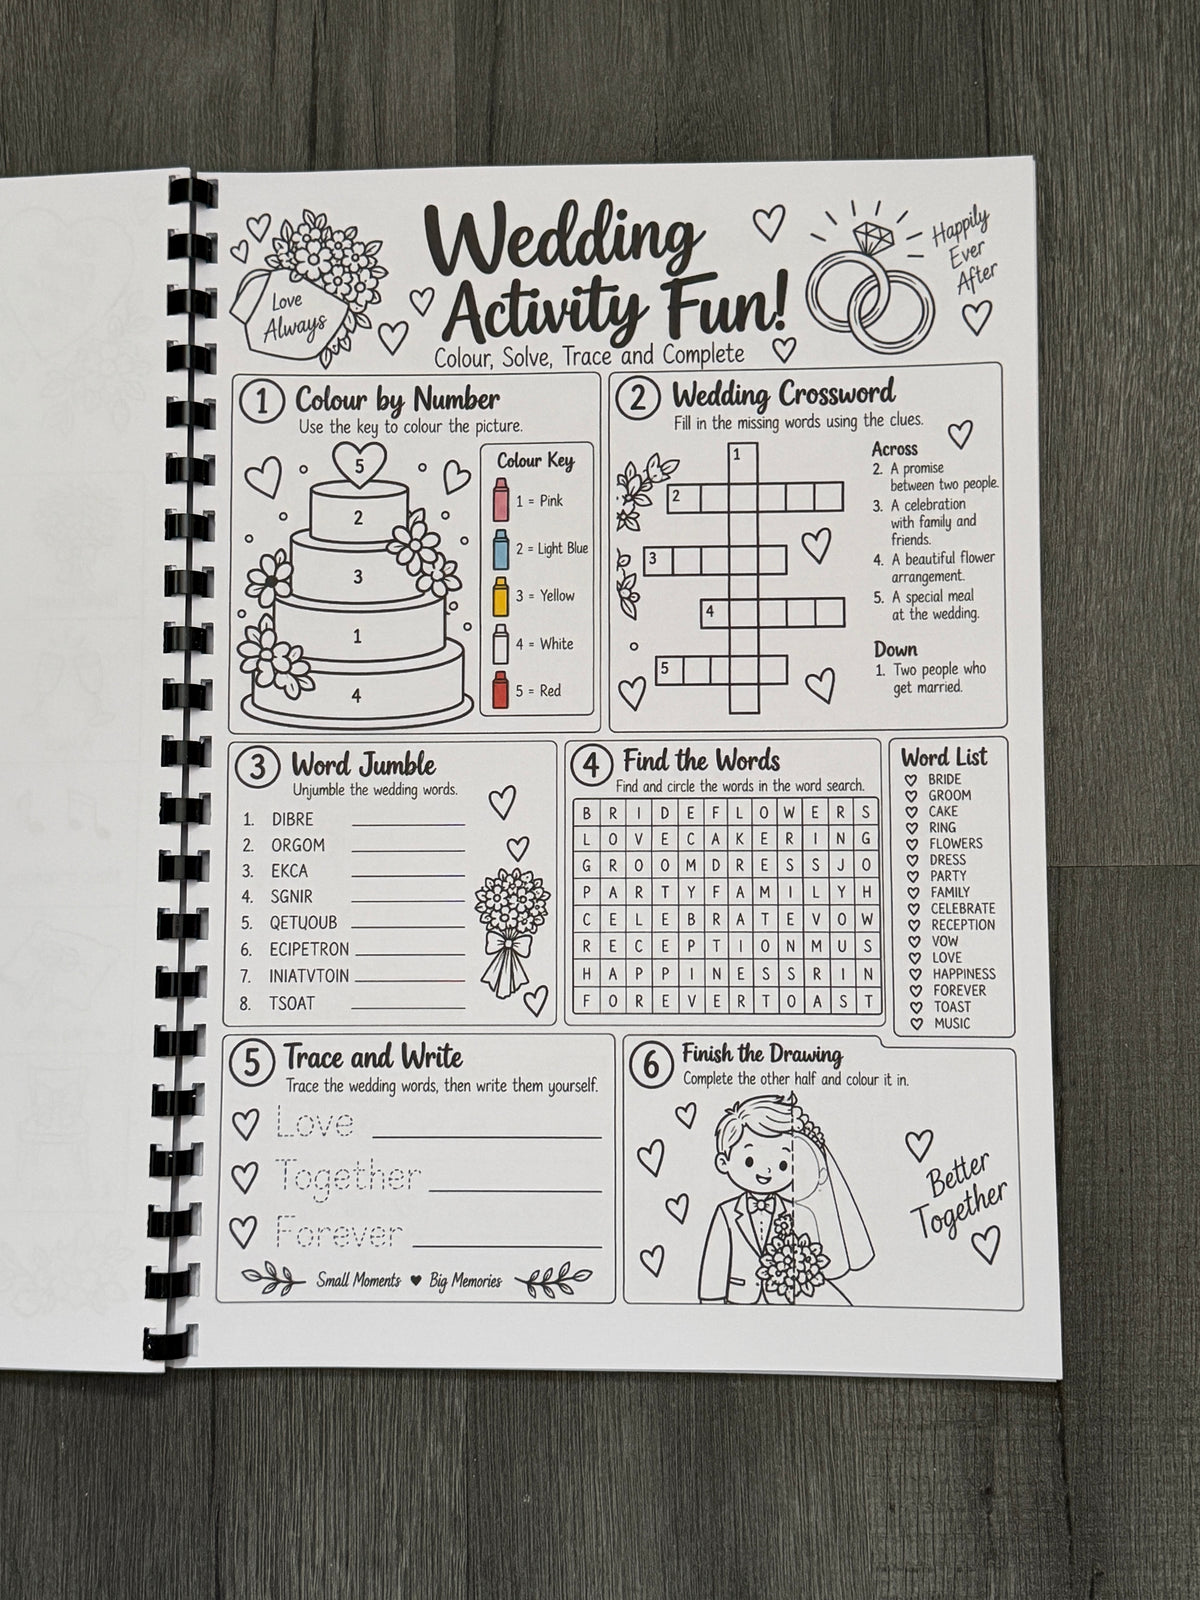 Love
Always
Wedding
Activity Fun!
Colour, Solve, Trace and Complete
Happily
Ever
After
1 Colour by Number
Use the key to colour the picture.
5
2
3
1
4
Colour Key
1 = Pink
2 = Light Blue
3 = Yellow
4 = White
5 = Red
2 Wedding Crossword
Fill in the missing words using the clues.
1
2
3
4
5
Across
2. A promise
between two people.
3. A celebration
with family and
friends.
4. A beautiful flower
arrangement.
5. A special meal
at the wedding.
Down
1. Two people who
get married.
3 Word Jumble
Unjumble the wedding words.
1. DIBRE
2. ORGOM
3. EKCA
4. SGNIR
5. QETUOUB
6. ECIPETRON
7. INIATVTOIN
8. TSOAT
4 Find the Words
Find and circle the words in the word search.
B R I D E F L O W E R S
L O V E C A K E R I N G
G R O O M D R E S S J O
P A R T Y F A M I L Y H
C E L E B R A T E V O W
R E C E P T I O N M U S
H A P P I N E S S R I N
F O R E V E R T O A S T
Word List
BRIDE
GROOM
CAKE
RING
FLOWERS
DRESS
PARTY
FAMILY
CELEBRATE
RECEPTION
VOW
LOVE
HAPPINESS
FOREVER
TOAST
MUSIC
5 Trace and Write
Trace the wedding words, then write them yourself.
Love
Together
Forever
Small Moments ♥ Big Memories
6 Finish the Drawing
Complete the other half and colour it in.
Better
Together